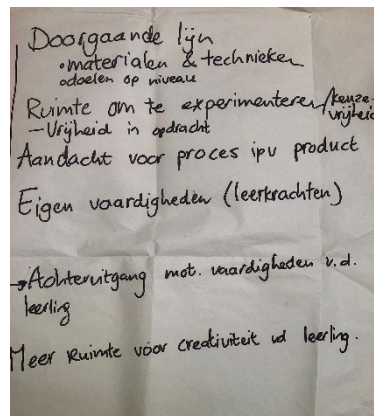 Doorgaande lijn
• materialen & technieken
• doelen op niveau
Ruimte om te experimenteren/keuze-
vrijheid
- Vrijheid in opdracht
Aandacht voor proces ipv product
Eigen vaardigheden (leerkrachten)
→ Achteruitgang mot. vaardigheden v.d.
leerling
Meer Ruimte voor creativiteit vd leerling.